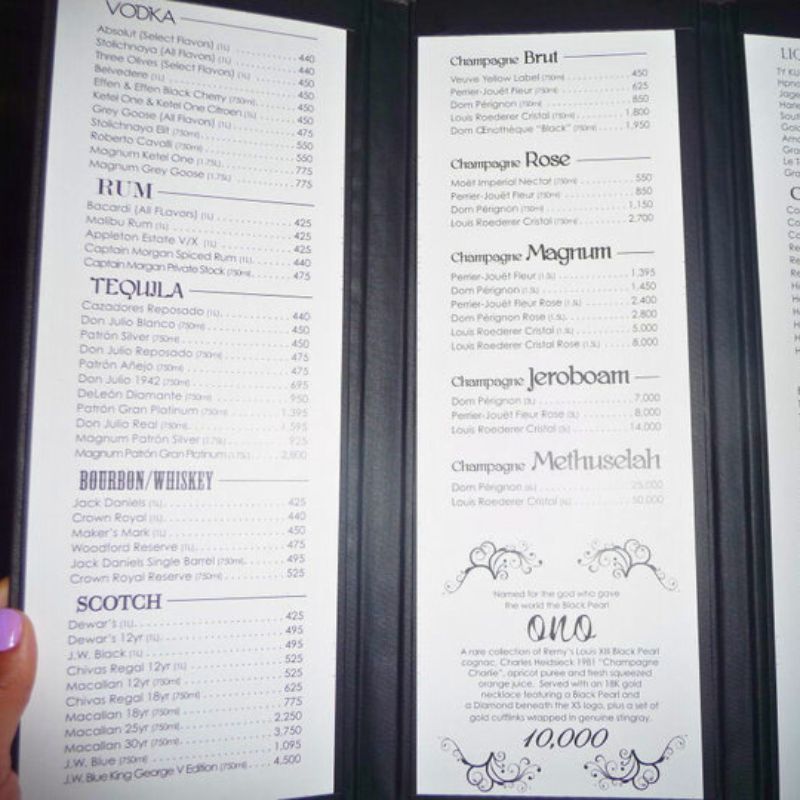 VODKA
Absolut (Select Flavors) (1L) 440
Stolichnaya (All Flavors) (1L) 440
Three Olives (Select Flavors) (1L) 450
Belvedere (1L) 450
Effen & Effen Black Cherry (750ml) 450
Ketel One & Ketel One Citroen (1L) 450
Grey Goose (All Flavors) (1L) 475
Stolichnaya Elit (750ml) 550
Roberto Cavalli (750ml) 550
Magnum Ketel One (1.75L) 775
Magnum Grey Goose (1.75L) 775
RUM
Bacardi (All FLavors) (1L) 425
Malibu Rum (1L) 425
Appleton Estate V/X (1L) 425
Captain Morgan Spiced Rum (1L) 440
Captain Morgan Private Stock (750ml) 475
TEQUILA
Cazadores Reposado (1L) 440
Don Julio Blanco (750ml) 450
Patrón Silver (750ml) 450
Don Julio Reposado (750ml) 475
Patrón Añejo (750ml) 475
Don Julio 1942 (750ml) 695
DeLeón Diamante (750ml) 950
Patrón Gran Platinum (750ml) 1,395
Don Julio Real (750ml) 1,595
Magnum Patrón Silver (1.75L) 925
Magnum Patrón Gran Platinum (1.75L) 2,800
BOURBON/WHISKEY
Jack Daniels (1L) 425
Crown Royal (1L) 440
Maker's Mark (1L) 450
Woodford Reserve (1L) 475
Jack Daniels Single Barrel (750ml) 495
Crown Royal Reserve (750ml) 525
SCOTCH
Dewar's (1L) 425
Dewar's 12yr (1L) 495
J.W. Black (1L) 495
Chivas Regal 12yr (1L) 525
Macallan 12yr (750ml) 525
Chivas Regal 18yr (750ml) 625
Macallan 18yr (750ml) 775
Macallan 25yr (750ml) 2,250
Macallan 30yr (750ml) 3,750
J.W. Blue (750ml) 1,095
J.W. Blue King George V Edition (750ml) 4,500
Champagne Brut
Veuve Yellow Label (750ml) 450
Perrier-Jouët Fleur (750ml) 625
Dom Pérignon (750ml) 850
Louis Roederer Cristal (750ml) 1,800
Dom Œnothèque "Black" (750ml) 1,950
Champagne Rose
Moët Imperial Nectar (750ml) 550
Perrier-Jouët Fleur (750ml) 850
Dom Pérignon (750ml) 1,150
Louis Roederer Cristal (750ml) 2,700
Champagne Magnum
Perrier-Jouët Fleur (1.5L) 1,395
Dom Pérignon (1.5L) 1,450
Perrier-Jouët Fleur Rose (1.5L) 2,400
Dom Pérignon Rose (1.5L) 2,800
Louis Roederer Cristal (1.5L) 5,000
Louis Roederer Cristal Rose (1.5L) 8,000
Champagne Jeroboam
Dom Pérignon (3L) 7,000
Perrier-Jouët Fleur Rose (3L) 8,000
Louis Roederer Cristal (3L) 14,000
Champagne Methuselah
Dom Pérignon (6L) 25,000
Louis Roederer Cristal (6L) 50,000
Named for the god who gave
the world the Black Pearl
ono
A rare collection of Remy's Louis XIII Black Pearl
cognac, Charles Heidsieck 1981 "Champagne
Charlie", apricot puree and fresh squeezed
orange juice. Served with an 18K gold
necklace featuring a Black Pearl and
a Diamond beneath the XS logo, plus a set of
gold cufflinks wrapped in genuine stingray.
10,000